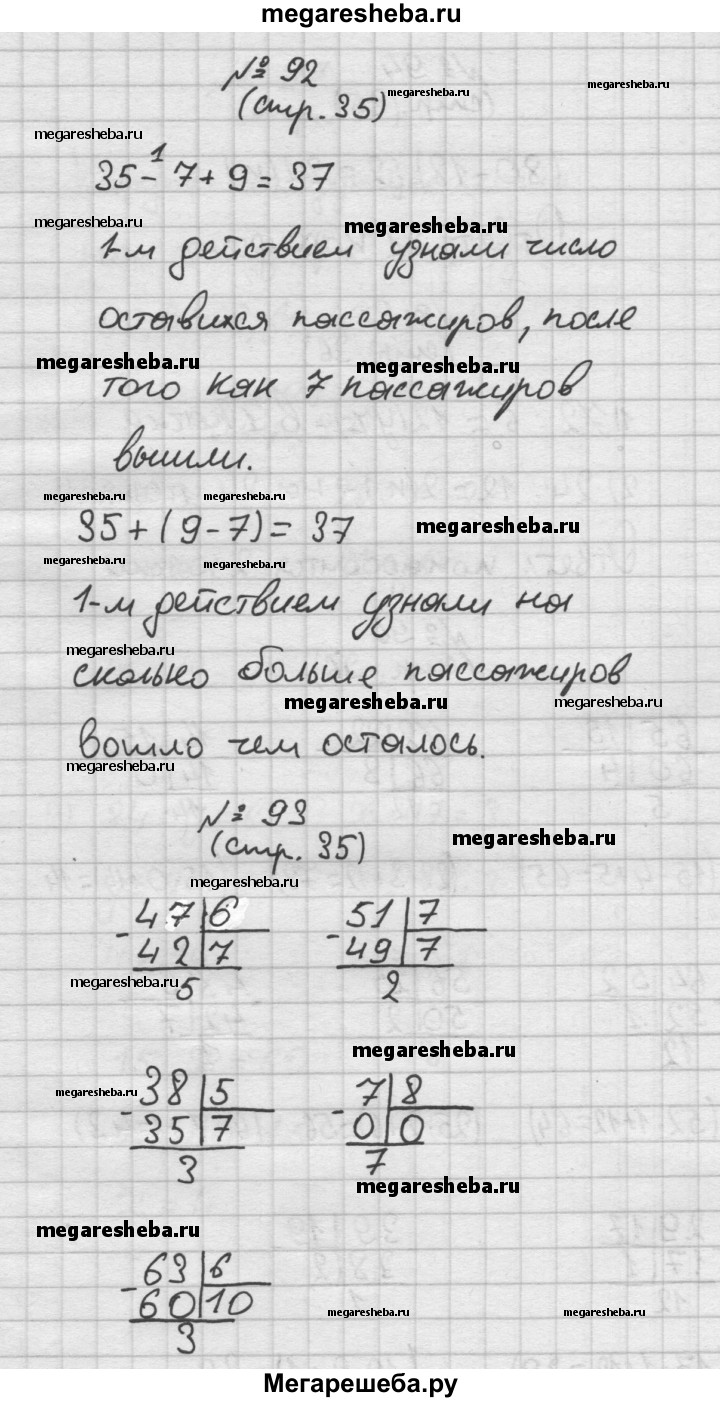 megaresheba.ru
№ 92
(стр. 35)
megaresheba.ru
megaresheba.ru
megaresheba.ru
1
35 - 7 + 9 = 37
megaresheba.ru
megaresheba.ru
1-м действием узнали число
оставихся пассажиров, после
megaresheba.ru
megaresheba.ru
того как 7 пассажиров
вышли.
megaresheba.ru
megaresheba.ru
35 + (9 - 7) = 37
megaresheba.ru
1-м действием узнали на
megaresheba.ru
сколько больше пассажиров
megaresheba.ru
megaresheba.ru
вошло чем осталось.
megaresheba.ru
№ 93
(стр. 35)
megaresheba.ru
megaresheba.ru
- 47 | 6
42 | 7
5
- 51 | 7
49 | 7
2
megaresheba.ru
megaresheba.ru
megaresheba.ru
- 38 | 5
35 | 7
3
- 7 | 8
0 | 0
7
megaresheba.ru
megaresheba.ru
- 63 | 6
60 | 10
3
megaresheba.ru
megaresheba.ru
Мегарешеба.ру